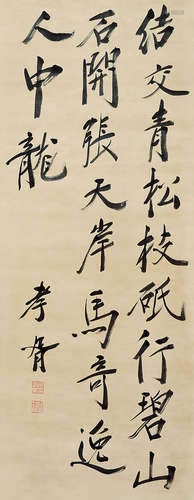 結交青松枝砥行碧山
石開張天岸馬奇逸
人中龍
孝胥